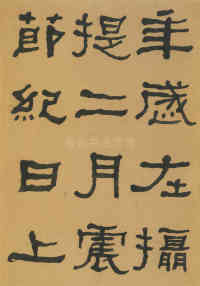 年歲在攝
提二月震
節紀日上